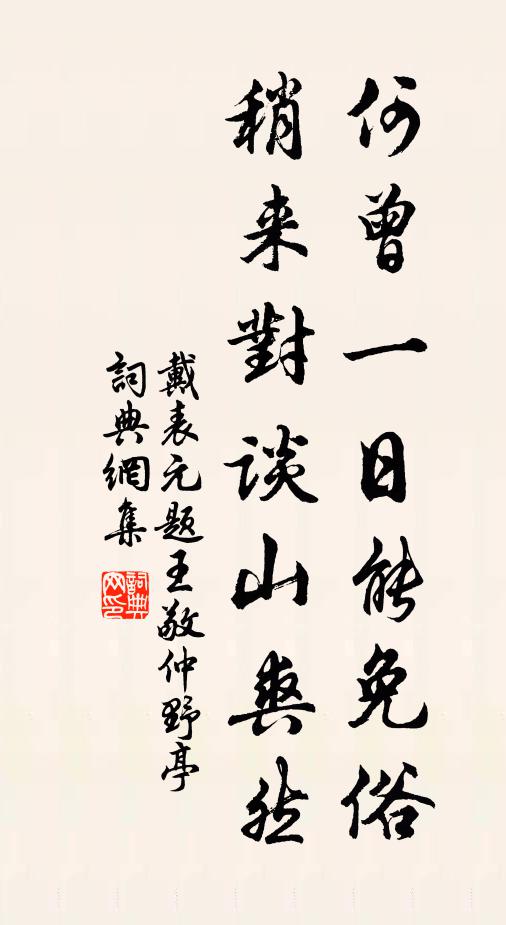 何曾一日能免俗
稍来對谈山爽然
戴表元题王敬仲野亭
詞典網集
詞典网印